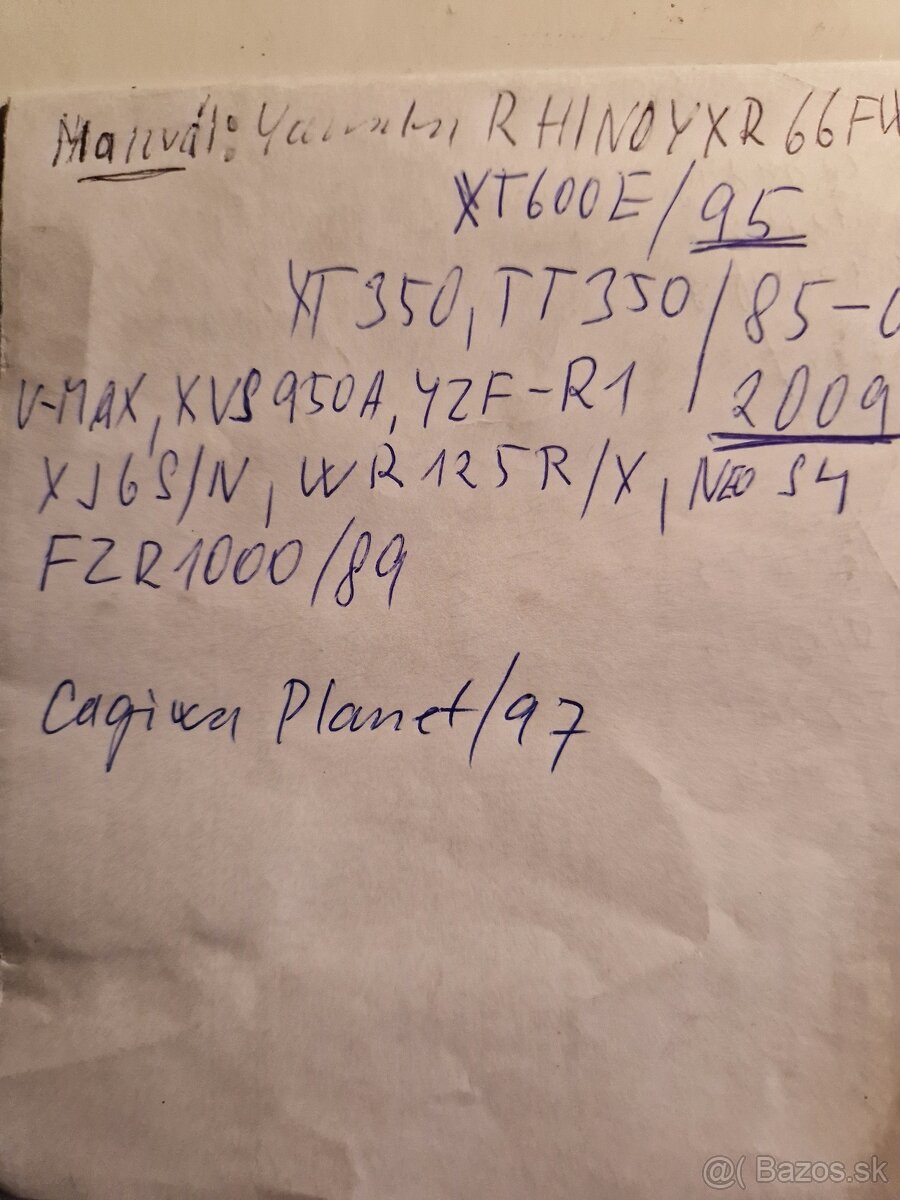 Manuál: Yamaha RHINO YXR 66FW
XT600E/95
XT350, TT350/85-0
V-MAX, XVS950A, YZF-R1/2009
XJ6S/N, WR125R/X, NEO S4
FZR1000/89
Cagiva Planet/97
@( Bazos.sk